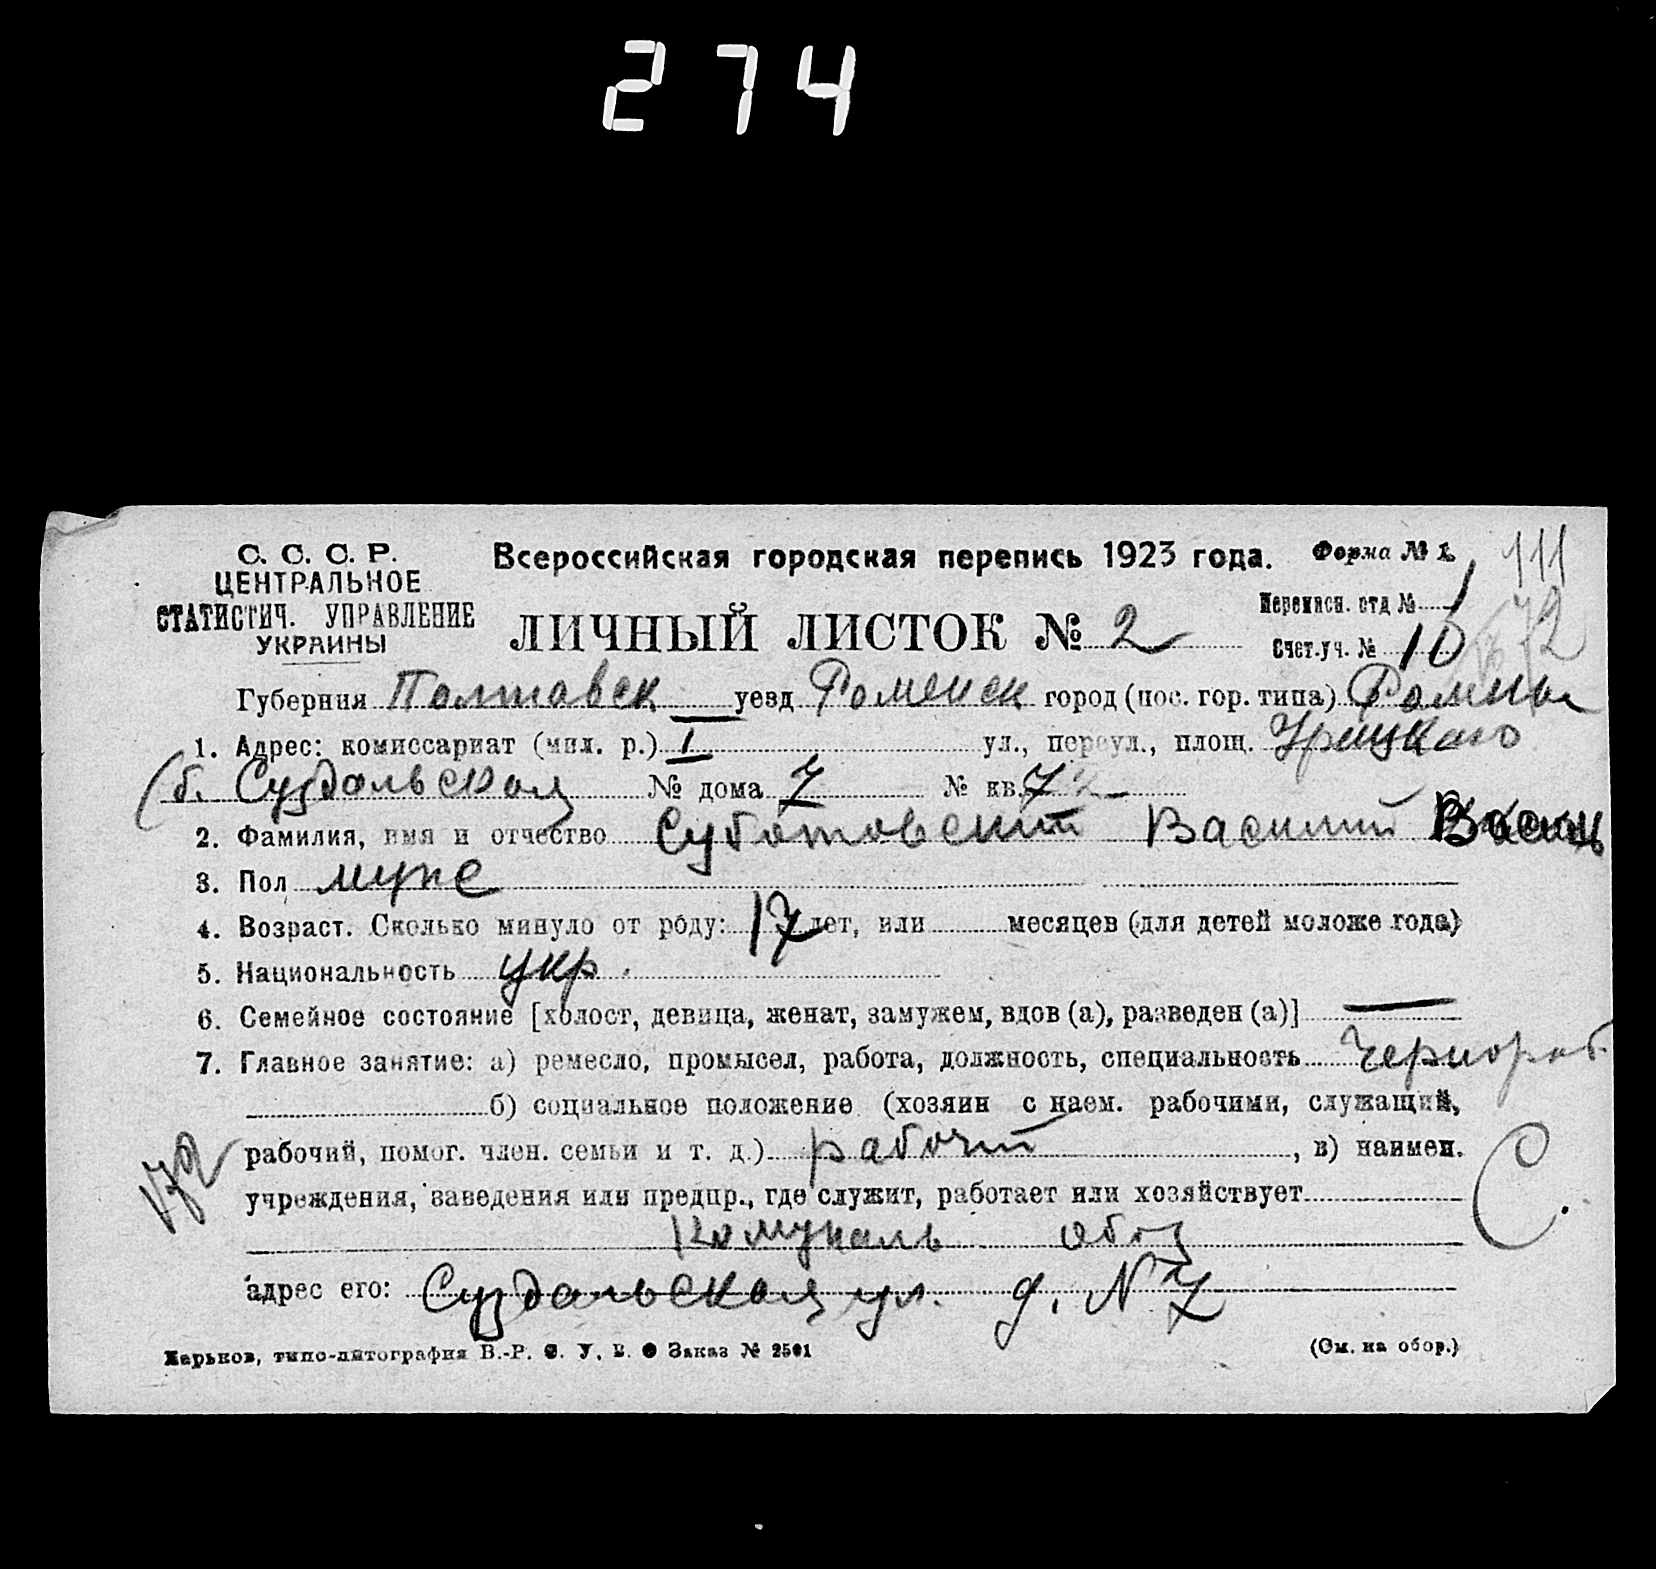 274
С. С. С. Р.
ЦЕНТРАЛЬНОЕ
СТАТИСТИЧ. УПРАВЛЕНИЕ
УКРАИНЫ
Всероссийская городская перепись 1923 года.
Форма № 1.
111
ЛИЧНЫЙ ЛИСТОК № 2
Переписн. отд № 1
Счет.уч. № 10
72
Губерния Полтавск уезд Роменск город (пос. гор. типа) Ромны
1. Адрес: комиссариат (мил. р.) I ул., переул., площ. Урицкого
(б. Суздальская № дома 7 № кв. 7
2. Фамилия, имя и отчество Суботовский Василий
3. Пол муже
4. Возраст. Сколько минуло от роду: 17 лет, или месяцев (для детей моложе года)
5. Национальность укр.
6. Семейное состояние [холост, девица, женат, замужем, вдов (а), разведен (а)] —
7. Главное занятие: а) ремесло, промысел, работа, должность, специальность Чернораб.
б) социальное положение (хозяин с наем. рабочими, служащий,
рабочий, помог. член. семьи и т. д.) рабочий, в) наимен.
172
учреждения, заведения или предпр., где служит, работает или хозяйствует
С.
Комуналь обоз
адрес его: Суздальская ул. д. N 7
Харьков, типо-литография В.-Р. С. У. В. Заказ № 2501
(См. на обор.)